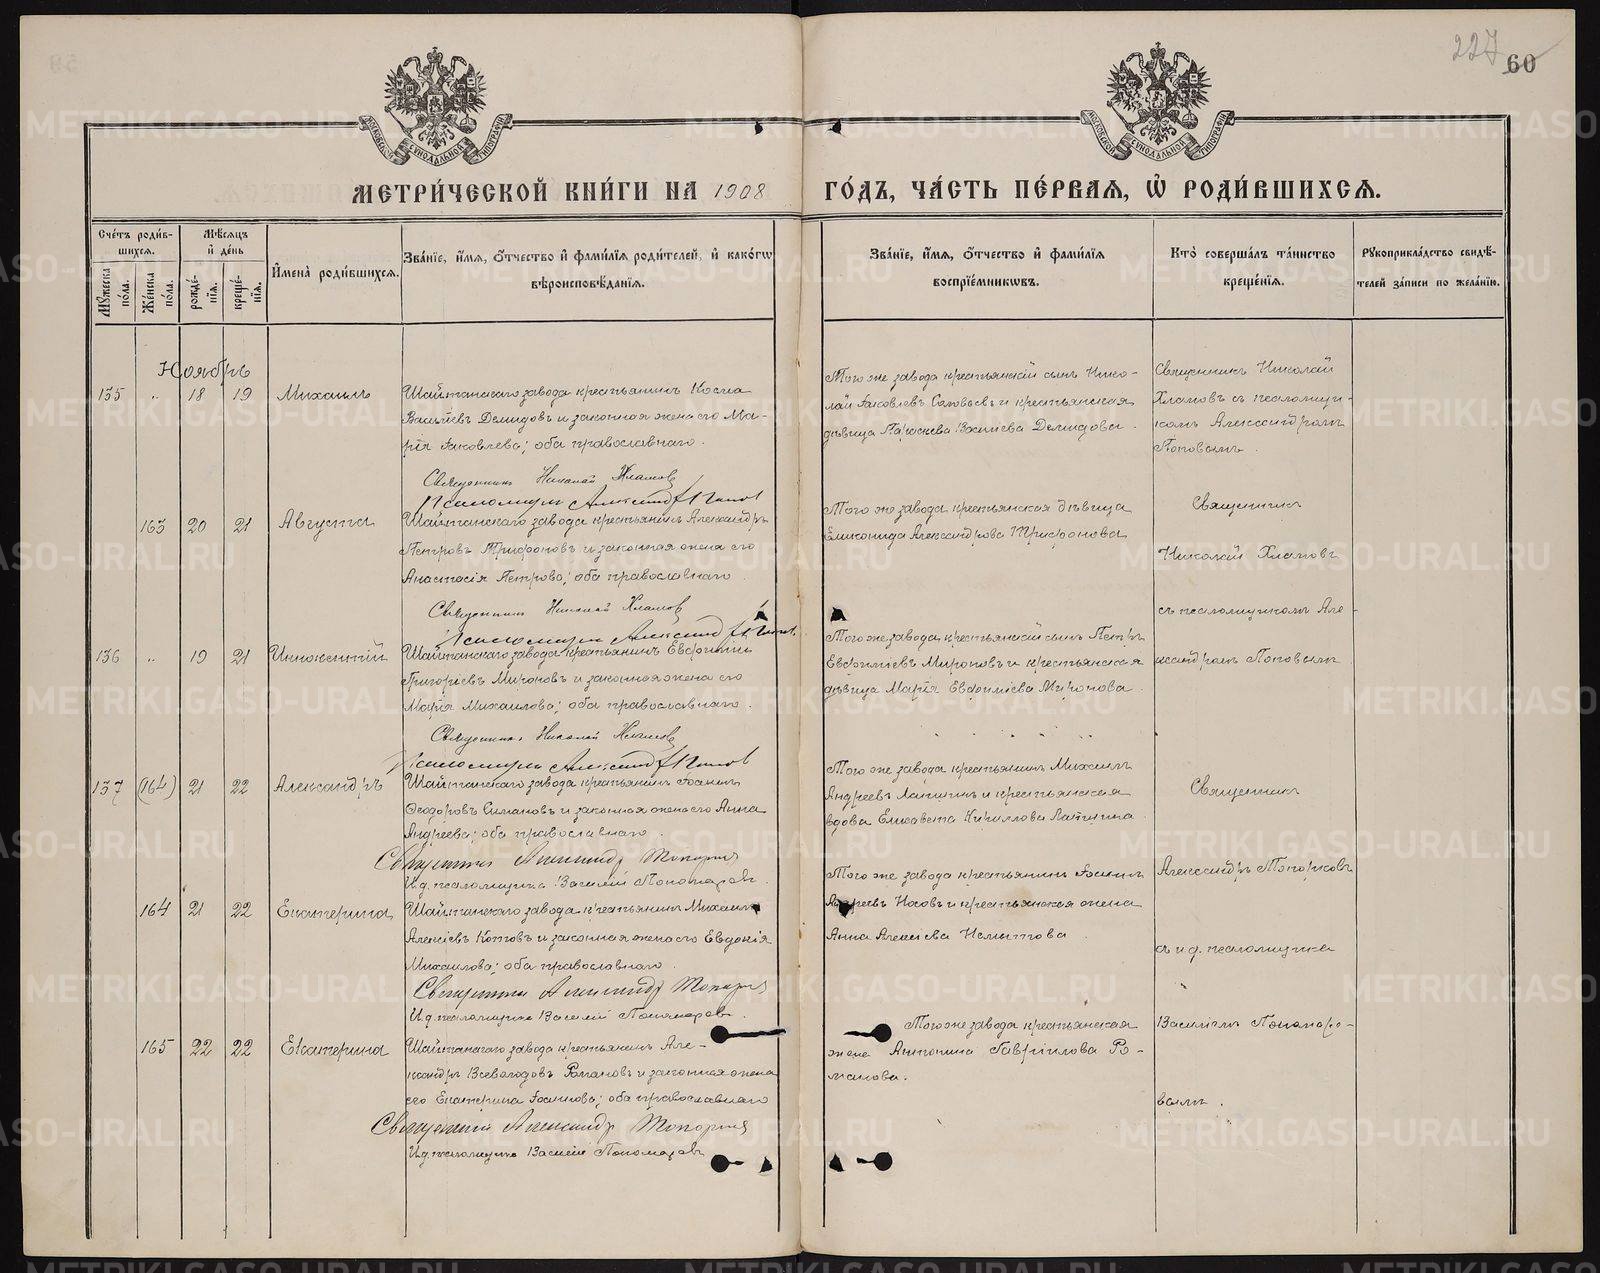 227
60
МОСКОВСКОЙ СУНОДАЛЬНОЙ ТИПОГРАФІИ
МОСКОВСКОЙ СУНОДАЛЬНОЙ ТИПОГРАФІИ
МЕТРИ́ЧЕСКОЙ КНИ́ГИ НА 1908 ГО́ДЪ, ЧА́СТЬ ПЕ́РВАЯ, Ѡ РОДИ́ВШИХСЯ.
Сче́тъ роди́в-
шихся.
Му́жеска по́ла.
Же́нска по́ла.
Мѣ́сяцъ
и де́нь
рожде́-
нїя.
креще́-
нїя.
И҆мена̀ роди́вшихся.
Зва́нїе, и҆́мя, о҆́тчество и҆ фами́лїя роди́телей, и҆ како́гѡ
вѣроисповѣ́данїя.
Зва́нїе, и҆́мя, о҆́тчество и҆ фами́лїя
воспрїе́мникѡвъ.
Кто̀ соверша́лъ та́инство
креще́нїя.
Рꙋкоприкла́дство свидѣ́-
телей за́писи по жела́нїю.
Ноябрь
135 „ 18 19 Михаилъ
Шайтанскаго завода крестьянинъ Косма
Васильевъ Демидовъ и законная жена его Ма-
рія Іаковлева; оба православнаго.
Священникъ Николай Хламовъ
Псаломщикъ Александръ Поповъ
Того же завода крестьянскій сынъ Нико-
лай Іаковлевъ Соловьевъ и крестьянская
дѣвица Параскева Васильева Демидова.
Священникъ Николай
Хламовъ съ псаломщи-
комъ Александромъ
Поповымъ.
163 20 21 Августа
Шайтанскаго завода крестьянинъ Александръ
Петровъ Трифоновъ и законная жена его
Анастасія Петрова; оба православнаго
Священникъ Николай Хламовъ
Псаломщикъ Александръ Поповъ
Того же завода крестьянская дѣвица
Еликонида Александрова Трифонова
Священникъ
Николай Хламовъ
съ псаломщикомъ Але-
ксандромъ Поповымъ
136 „ 19 21 Иннокентій
Шайтанскаго завода крестьянинъ Евфимій
Григорьевъ Мироновъ и законная жена его
Марія Михаилова; оба православнаго.
Священникъ Николай Хламовъ
Псаломщикъ Александръ Поповъ
Того же завода крестьянскій сынъ Петръ
Евфиміевъ Мироновъ и крестьянская
дѣвица Марія Евфиміева Миронова.
137 (164) 21 22 Александръ
Шайтанскаго завода крестьянинъ Іоаннъ
Ѳеодоровъ Симановъ и законная жена его Анна
Андреева; оба православнаго.
Священникъ Александръ Топорковъ
И.д. псаломщика Василій Пономаревъ.
Того же завода крестьянинъ Михаилъ
Андреевъ Лапшинъ и крестьянская
вдова Елисавета Кириллова Лапшина
Священникъ
Александръ Топорковъ
съ и.д. псаломщика
Василіемъ Пономаре-
вымъ.
164 21 22 Екатерина
Шайтанскаго завода крестьянинъ Михаилъ
Алексіевъ Котовъ и законная жена его Евдокія
Михаилова; оба православнаго.
Священникъ Александръ Топорковъ
И.д. псаломщика Василій Пономаревъ.
Того же завода крестьянинъ Іоаннъ
Андреевъ Носовъ и крестьянская жена
Анна Алексіева
165 22 22 Екатерина
Шайтанскаго завода крестьянинъ Але-
ксандръ Всеволодовъ Романовъ и законная жена
его Екатерина Іоаннова; оба православнаго
Священникъ Александръ Топорковъ
И.д. псаломщика Василій Пономаревъ
Того же завода крестьянская
жена Антонина Гавриилова Ро-
манова.
METRIKI.GASO-URAL.RU